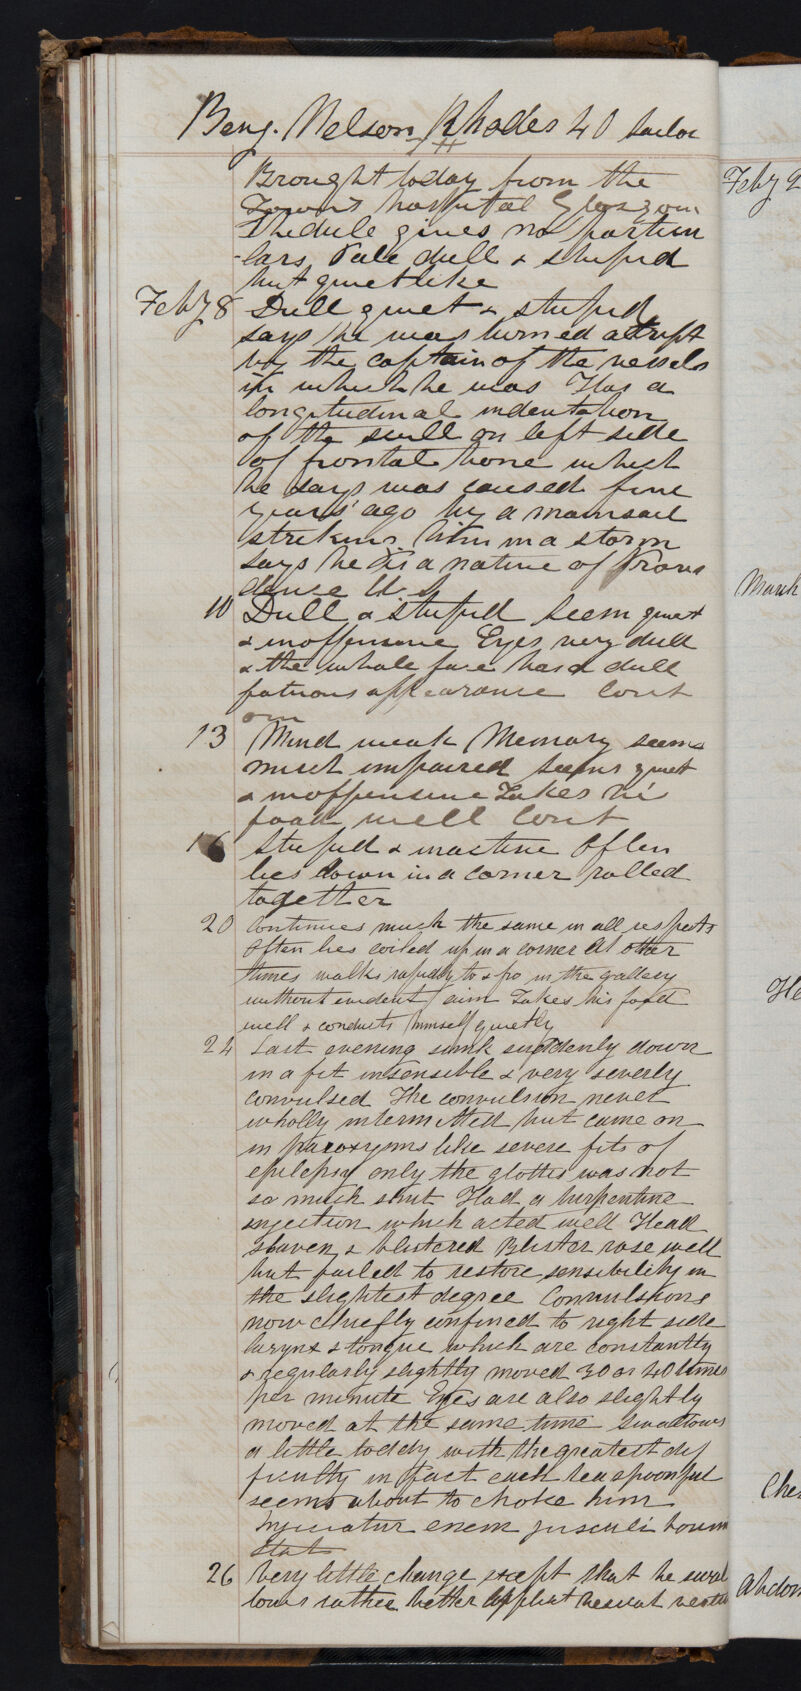 Benj. Nelson Rhodes 40 Sailor
Brought today from the
Towns hospital Glasgow
Shedule gives no particu
-lars Pale dull & stupid
but quietlike
Feby 8 Dull quiet & stupid
says he was turned adrift
by the captain of the vessels
in which he was Has a
longitudinal indentation
of the scull on left side
of frontal bone which
he says was caused five
years ago by a mainsail
striking him in a storm
says he is a native of Provi
dence U.S
10 Dull & stupid seem quiet
& inoffensive Eyes very dull
& the whole face has a dull
fatuous appearance Cont
om
13 Mind weak Memory seems
much impaired seems quiet
& inoffensive Takes his
food well Cont
16 Stupid & inactive Often
lies down in a corner rolled
together
20 Continues much the same in all respects
Often lies coiled up in a corner At other
times walks rapidly to & fro in the gallery
without evident aim Takes his food
well & conducts himself quietly
24 Last evening sunk suddenly down
in a fit insensible & very severly
convulsed The convulsion never
wholly intermitted but came on
in paroxysms like severe fits of
epilepsy only the glottis was not
so much shut Had a turpentine
injection which acted well Head
shaven & blistered Blister rose well
but failed to restore sensibility in
the slightest degree Convulsions
now chiefly confined to right side
larynx & tongue which are constantly
& regularly slightly moved 30 or 40 times
per minute Eyes are also slightly
moved at the same time Swallows
a little toddy with the greatest dif
ficulty in fact each teaspoonful
seems about to choke him
Injiciatur enem jusculi bovin
Stat
26 Very little change except that he swal
lows rather better Applicat
Feby 9
March
He
Ches
Abdom